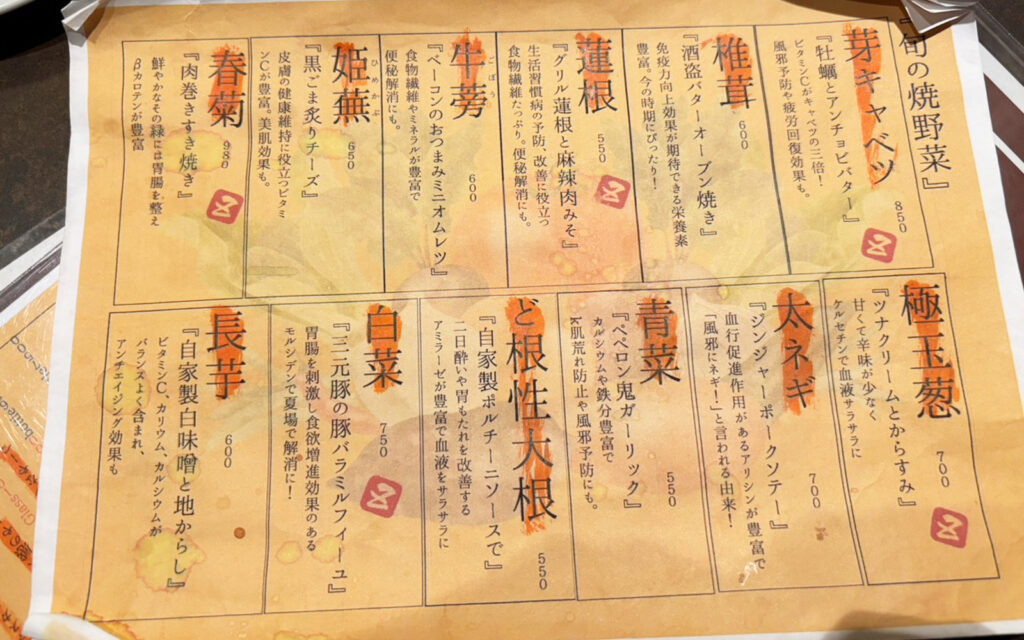 『旬の焼野菜』
芽キャベツ
850
『牡蠣とアンチョビバター』
ビタミンCがキャベツの三倍！
風邪予防や疲労回復効果も。
椎茸
600
『酒盗バターオーブン焼き』
免疫力向上効果が期待できる栄養素
豊富。今の時期にぴったり！
蓮根
550
『グリル蓮根と麻辣肉みそ』
生活習慣病の予防、改善に役立つ
食物繊維たっぷり。便秘解消にも。
牛蒡
ごぼう
600
『ベーコンのおつまみミニオムレツ』
食物繊維やミネラルが豊富で
便秘解消にも。
姫蕪
ひめかぶ
650
『黒ごま炙りチーズ』
皮膚の健康維持に役立つビタミ
ンCが豊富。美肌効果も。
春菊
980
『肉巻きすき焼き』
鮮やかなその緑には胃腸を整え
βカロテンが豊富
極玉葱
700
『ツナクリームとからすみ』
甘くて辛味が少なく
ケルセチンで血液サラサラに
太ネギ
700
『ジンジャーポークソテー』
血行促進作用があるアリシンが豊富で
「風邪にネギ！」と言われる由来！
青菜
550
『ペペロン鬼ガーリック』
カルシウムや鉄分豊富で
肌荒れ防止や風邪予防にも。
ど根性大根
550
『自家製ポルチーニソースで』
二日酔いや胃もたれを改善する
アミラーゼが豊富で血液をサラサラに
白菜
750
『三元豚の豚バラミルフィーユ』
胃腸を刺激し食欲増進効果のある
モルシデンで夏場で解消に！
長芋
600
『自家製白味噌と地からし』
ビタミンC、カリウム、カルシウムが
バランスよく含まれ、
アンチエイジング効果も